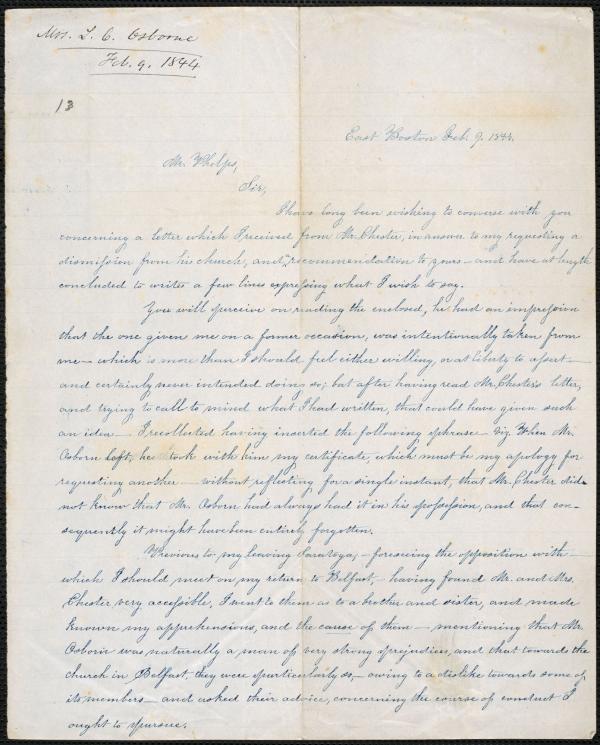 Mrs. L. C. Osborne
Feb. 9. 1844
13
East Boston Feb. 9. 1844.
Mr. Phelps,
Sir,
I have long been wishing to converse with you
concerning a letter which I received from Mr. Chester, in answer to my requesting a
dismission from his church, and recommendation to yours — and have at length
concluded to write a few lines expressing what I wish to say.
You will perceive on reading the enclosed, he had an impression
that the one given me on a former occasion, was intentionally taken from
me — which is more than I should feel either willing, or at liberty to assert —
and certainly never intended doing so; but after having read Mr. Chester's letter,
and trying to call to mind what I had written, that could have given such
an idea — I recollected having inserted the following phrase — viz. When Mr.
Osborn left, he took with him my certificate, which must be my apology for
requesting another — without reflecting for a single instant, that Mr. Chester did
not know that Mr. Osborn had always had it in his possession, and that con-
sequently it might have been entirely forgotten.
Previous to my leaving Saratoga, — foreseeing the opposition with
which I should meet on my return to Belfast, — having found Mr. and Mrs.
Chester very accessible, I went to them as to a brother and sister, and made
known my apprehensions, and the cause of them — mentioning that Mr.
Osborn was naturally a man of very strong prejudices, and that towards the
church in Belfast, they were particularly so, — owing to a dislike towards some of
its members — and asked their advice, concerning the course of conduct I
ought to pursue.